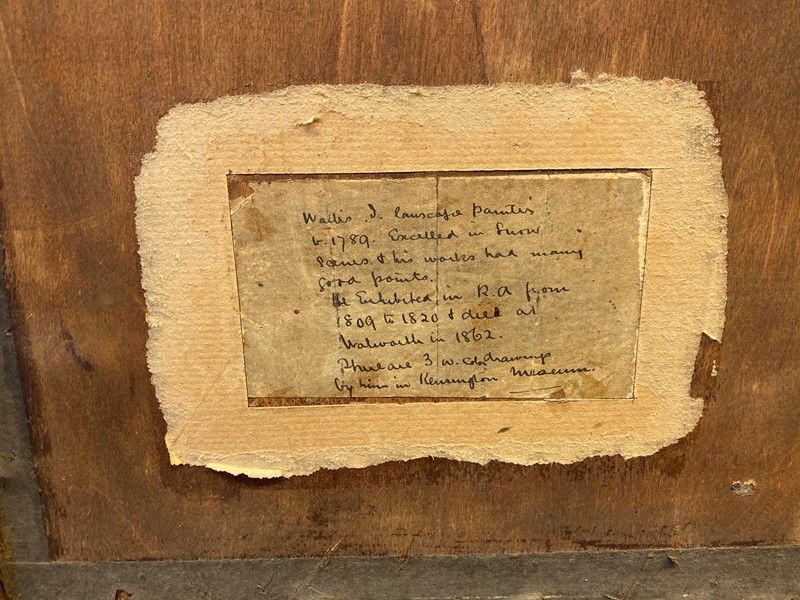 Wallis J. lanscape painter
b. 1789. Excelled in Snow
Scenes & his works had many
good points.
He Exhibited in R.A from
1809 to 1820 & died at
Walworth in 1862.
There are 3 w. col drawings
by him in Kensington Museum.